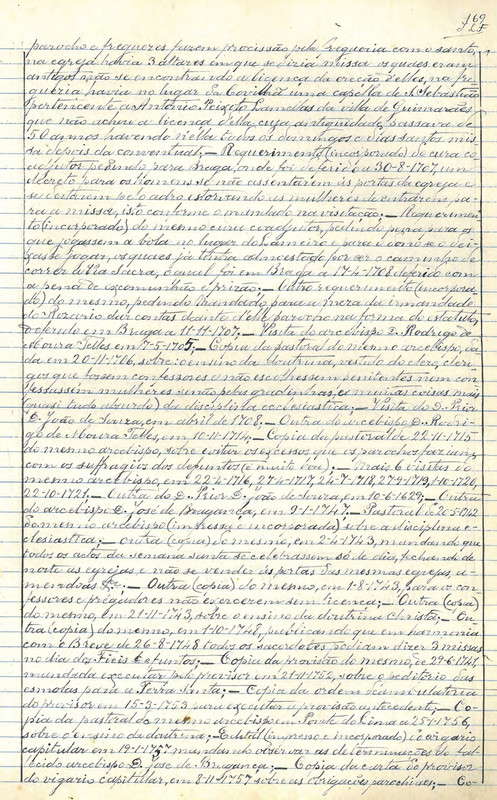 169
parocho e freguezes fazem procissão pela freguezia com o santo,
na egreja havia 3 altares em que se dizia missa os quaes eram
antigos não se encontrando a licença da ereção d'elles, na fre-
guezia havia no lugar da Corvilhã uma capella de S. Sebastião
pertencente a Antonio Peixoto da villa de Guimarães
que não achou a licença d'ella cuja antiguidade passava de
50 annos havendo n'ella todos os domingos e dias santos mis-
sa depois da conventual; — Requerimento (incorporado) do cura co-
adjutor pedindo para Braga, onde foi deferido a 30-8-1707, um
decreto para os homens se não assentarem ás portas da egreja e
se deitarem pelo adro estorvando as mulheres de entrarem pa-
ra a missa, isto conforme o mandado na visitação; — Requerimen-
to (incorporado) do mesmo cura coadjutor, pedindo pena para os
que jogassem a bola no lugar do Lameiro e para o dono se o dei-
xasse jogar, os quaes já tinha admoestado por ser o caminho de
correr a Via Sacra, o qual foi em Braga a 17-4-1708 deferido com
a pena de excomunhão e prizão; — Outro requerimento (incorpora-
do) do mesmo, pedindo mandado para a meza da irmandade
do Rozario dar contas deante d'elle parocho na forma do estatuto,
deferido em Braga a 11-11-1707; — Visita do arcebispo D. Rodrigo de
Moura Telles em 7-5-1705; — Copia da pastoral do mesmo arcebispo, da-
da em 20-11-1716, sobre: o ensino da doutrina, vestido do clero, cleri-
gos que fossem confessores e não escolhessem penitentes nem con-
fessassem mulheres senão pelas gradinhas, e muitas coisas mais
(quasi tudo absurdo) da disciplina ecclesiastica; — Visita do D. Prior
D. João de Souza, em abril de 1708; — Outra do arcebispo D. Rodri-
go de Moura Telles, em 10-11-1714; — Copia da pastoral de 22-11-1715
do mesmo arcebispo, sobre evitar os excessos que os parochos faziam
com os sufragios dos defuntos (é muito boa); — Mais 6 visitas do
mesmo arcebispo, em 22-4-1716, 27-4-1717, 24-7-1718, 27-9-1719, 1-10-1720,
22-10-1721; — Outra do D. Prior D. João de Souza, em 10-6-1629; — Outra
do arcebispo D. José de Bragança, em 9-1-1747; — Pastoral de 20-5-1742
do mesmo arcebispo (impressa e incorporada) sobre a disciplina e-
clesiastica; — outra (copia) do mesmo, em 2-4-1743, mandando que
todos os actos da semana santa se celebrassem só de dia, fechando de
noite as egrejas, e não se vender ás portas das mesmas egrejas, a-
mendoas &c. — Outra (copia) do mesmo, em 1-8-1743, para os con-
fessores e prégadores não exercerem sem licença; — Outra (copia)
do mesmo, em 21-11-1743, sobre o ensino da doutrina christã; — Ou-
tra (copia) do mesmo, em 1-10-1748, publicando que em harmonia
com o Breve de 26-8-1748 todos os sacerdotes podiam dizer 3 missas
no dia dos Fieis Defuntos; — Copia da provisão do mesmo, de 29-6-1741,
mandada executar pelo provisor em 21-11-1752, sobre o peditorio das
esmolas para a Terra Santa; — Copia da ordem deambulatoria
do provisor em 15-3-1753 para executar a provisão antecedente; — Co-
pia da pastoral do mesmo arcebispo em Ponte do Lima a 25-1-1756,
sobre o ensino da doutrina; — Edital (impresso e incorporado) do vigario
capitular em 19-1-1757 mandando observar as determinações do fal-
lecido arcebispo D. José de Bragança; — Copia da carta do provisor
do vigario capitular, em 8-11-1757 sobre as obrigações parochiaes; — Co-